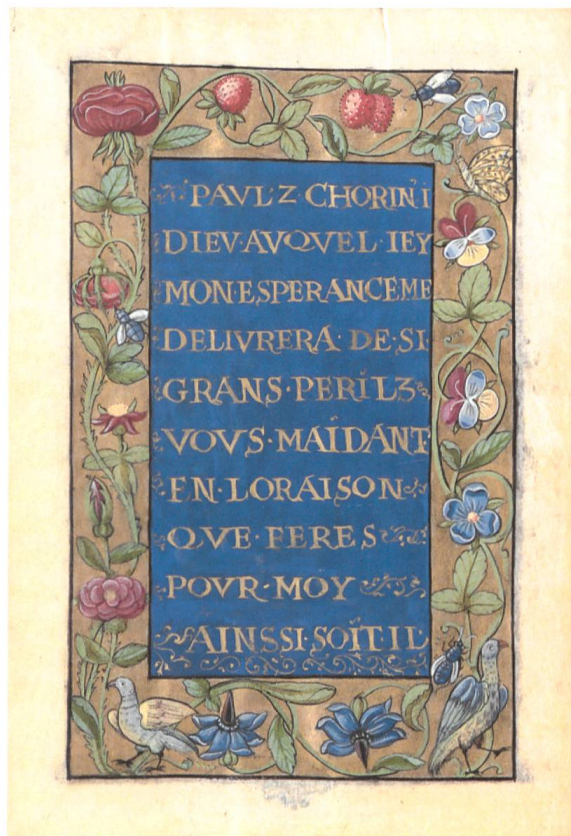 PAVL·Z·CHORIN·I
DIEV·AVQVEL·IEY
MON·ESPERANCE·ME
DELIVRERA·DE·SI·
GRANS·PERILZ
VOVS·MAÏDANT
EN·LORAISON
QVE·FERES
POVR·MOY
AINSSI·SOÏT IL